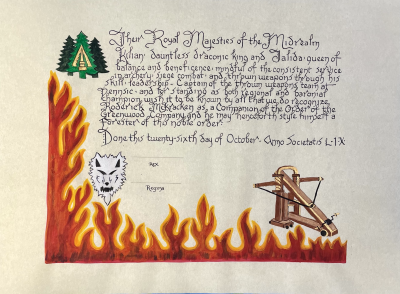 Their Royal Majesties of the Midrealm
Kilian dauntless draconic king and Jalida queen of
balance and beneficence mindful of the consistent service
in archery siege combat and thrown weapons through his
skill leadership Captain of the thrown weapons team at
Pennsic and for standing as both regional and baronial
champion wish it to be known by all that we do recognize
Roderick McCracken as a Companion of the Order of the
Greenwood Company and he may henceforth style himself a
Forester of this noble order
Done this twenty-sixth day of October Anno Societatis L·IX
Rex
Regina